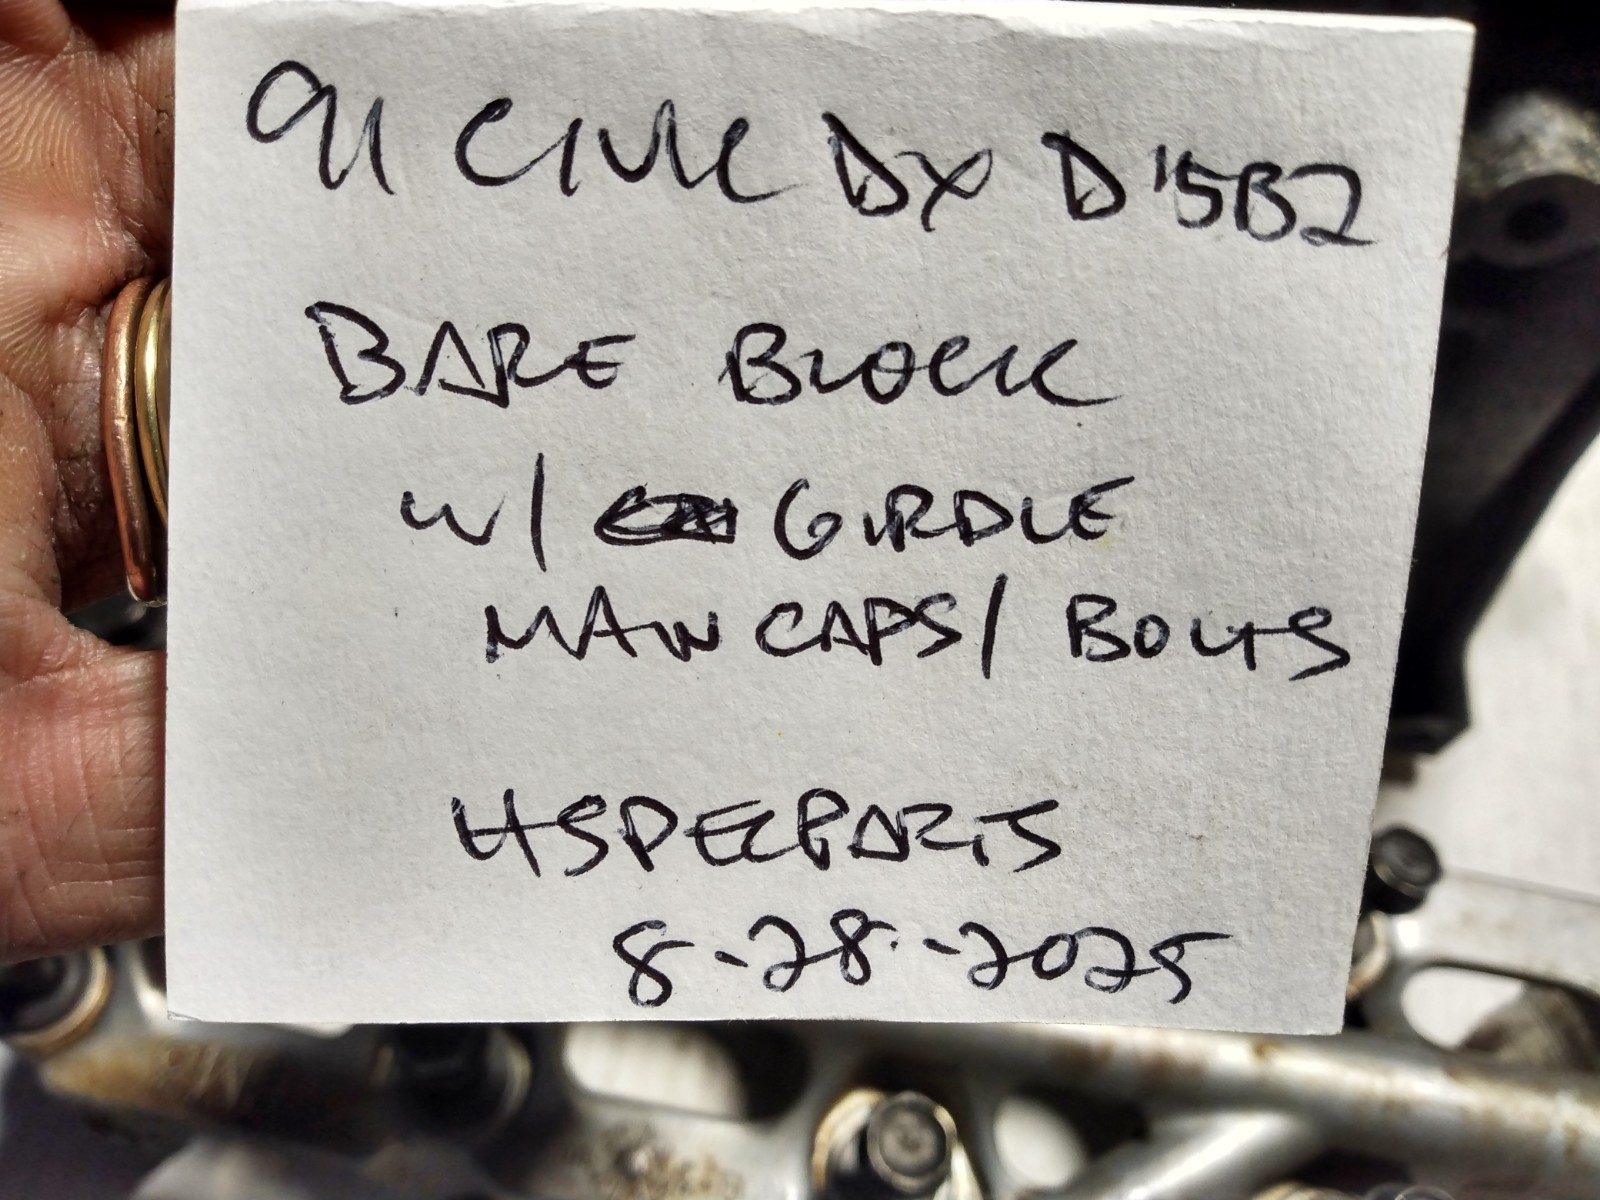 91 CIVIC DX D15B2
BARE BLOCK
W/ GIRDLE
MAIN CAPS/ BOLTS
HSPECPARTS
8-28-2025